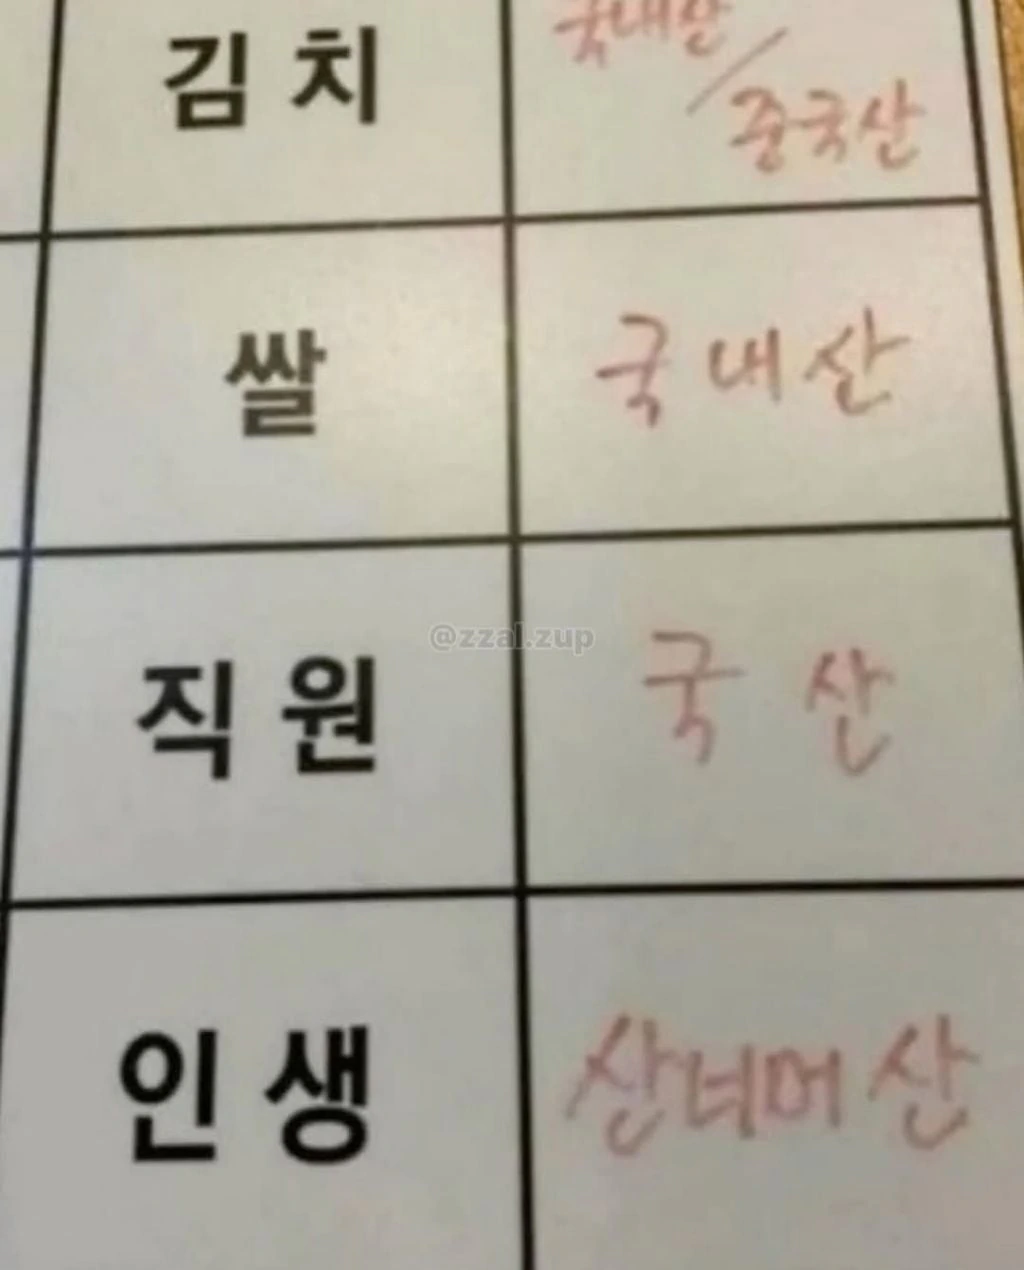 김치 국내산/중국산
쌀 국내산
@zzal.zup
직원 국산
인생 산너머 산